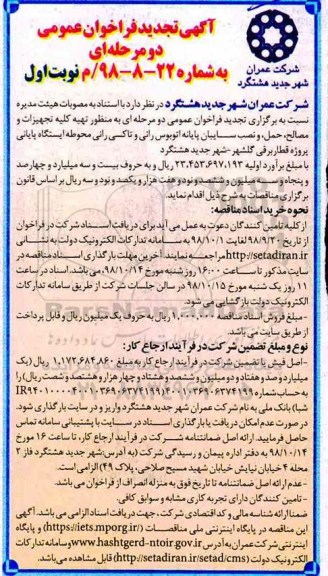 آگهی تجدید فراخوان عمومی
دو مرحله‌ای
به شماره ۲۲-۸-۹۸/م نوبت اول
شرکت عمران
شهر جدید هشتگرد
شرکت عمران شهر جدید هشتگرد در نظر دارد با استناد به مصوبات هیئت مدیره
نسبت به برگزاری تجدید فراخوان عمومی دو مرحله ای به منظور تهیه کلیه تجهیزات و
مصالح، حمل، و نصب سایبان پایانه اتوبوس رانی و تاکسی رانی محوطه ایستگاه پایانی
پروژه قطار برقی گلشهر - شهر جدید هشتگرد
با مبلغ برآورد اولیه ۲۳,۴۵۳,۶۹۷,۱۹۳ ریال و به حروف بیست و سه میلیارد و چهارصد
و پنجاه و سه میلیون و ششصد و نود و هفت هزار و یکصد و نود و سه ریال بر اساس قانون
برگزاری مناقصات به شرح ذیل اقدام نماید.
نحوه خرید اسناد مناقصه:
از کلیه تامین کنندگان دعوت به عمل می آید برای دریافت اسناد شرکت در فراخوان
از تاریخ ۹۸/۹/۳۰ لغایت ۹۸/۱۰/۱ به سامانه تدارکات الکترونیک دولت به نشانی
http://setadiran.ir مراجعه نمایند. آخرین مهلت بارگذاری اسناد مناقصه در
سایت مذکور تا ساعت ۱۶:۰۰ روز شنبه مورخ ۹۸/۱۰/۱۴ می باشد. اسناد در ساعت
۱۱ روز یک شنبه مورخ ۹۸/۱۰/۱۵ در سالن جلسات شرکت از طریق سامانه تدارکات
الکترونیک دولت بازگشایی می شود.
- مبلغ فروش اسناد مناقصه ریال به حروف یک میلیون ریال و قابل پرداخت
از طریق سایت می باشد.
نوع و مبلغ تضمین شرکت در فرآیند ارجاع کار:
- اصل فیش یا تضمین شرکت در فرآیند ارجاع کار به مبلغ ۱,۱۷۲,۶۸۴,۸۶۰ ریال (یک
میلیارد و صد و هفتاد و دو میلیون و ششصد و هشتاد و چهار هزار و هشتصد و شصت ریال) را
به حساب شماره
شبا) بانک ملی به نام شرکت عمران شهر جدید هشتگرد واریز و در سایت بارگذاری شود.
در صورت عدم امکان دریافت یا بارگذاری اسناد در سایت با پشتیبانی سامانه تماس
حاصل فرمایید. ارائه اصل ضمانتنامه شرکت در فرآیند ارجاع کار، تا ساعت ۱۶ مورخ
۹۸/۱۰/۱۴ به دفتر اداره پیمان و رسیدگی شرکت (به آدرس: شهر جدید هشتگرد فاز ۲
محله ۴ خیابان نیایش خیابان شهید مسیح صلاحی، پلاک ۴۹) الزامی است.
- عدم ارائه اصل ضمانتنامه تا تاریخ فوق به منزله انصراف از فراخوان می باشد.
- تامین کنندگان دارای تجربه کاری مشابه و سوابق کافی.
ضمنا ارائه شناسه ملی و کد اقتصادی شرکت، جهت دریافت اسناد الزامی می باشد. آگهی
این مناقصه در پایگاه اینترنتی ملی مناقصات (https://iets.mporg.ir/) و پایگاه
اینترنتی شرکت عمران به آدرس www.hashtgerd-ntoir.gov.ir و سامانه تدارکات
الکترونیک دولت (http://setadiran.ir/setad/cms) قابل مشاهده می باشد.